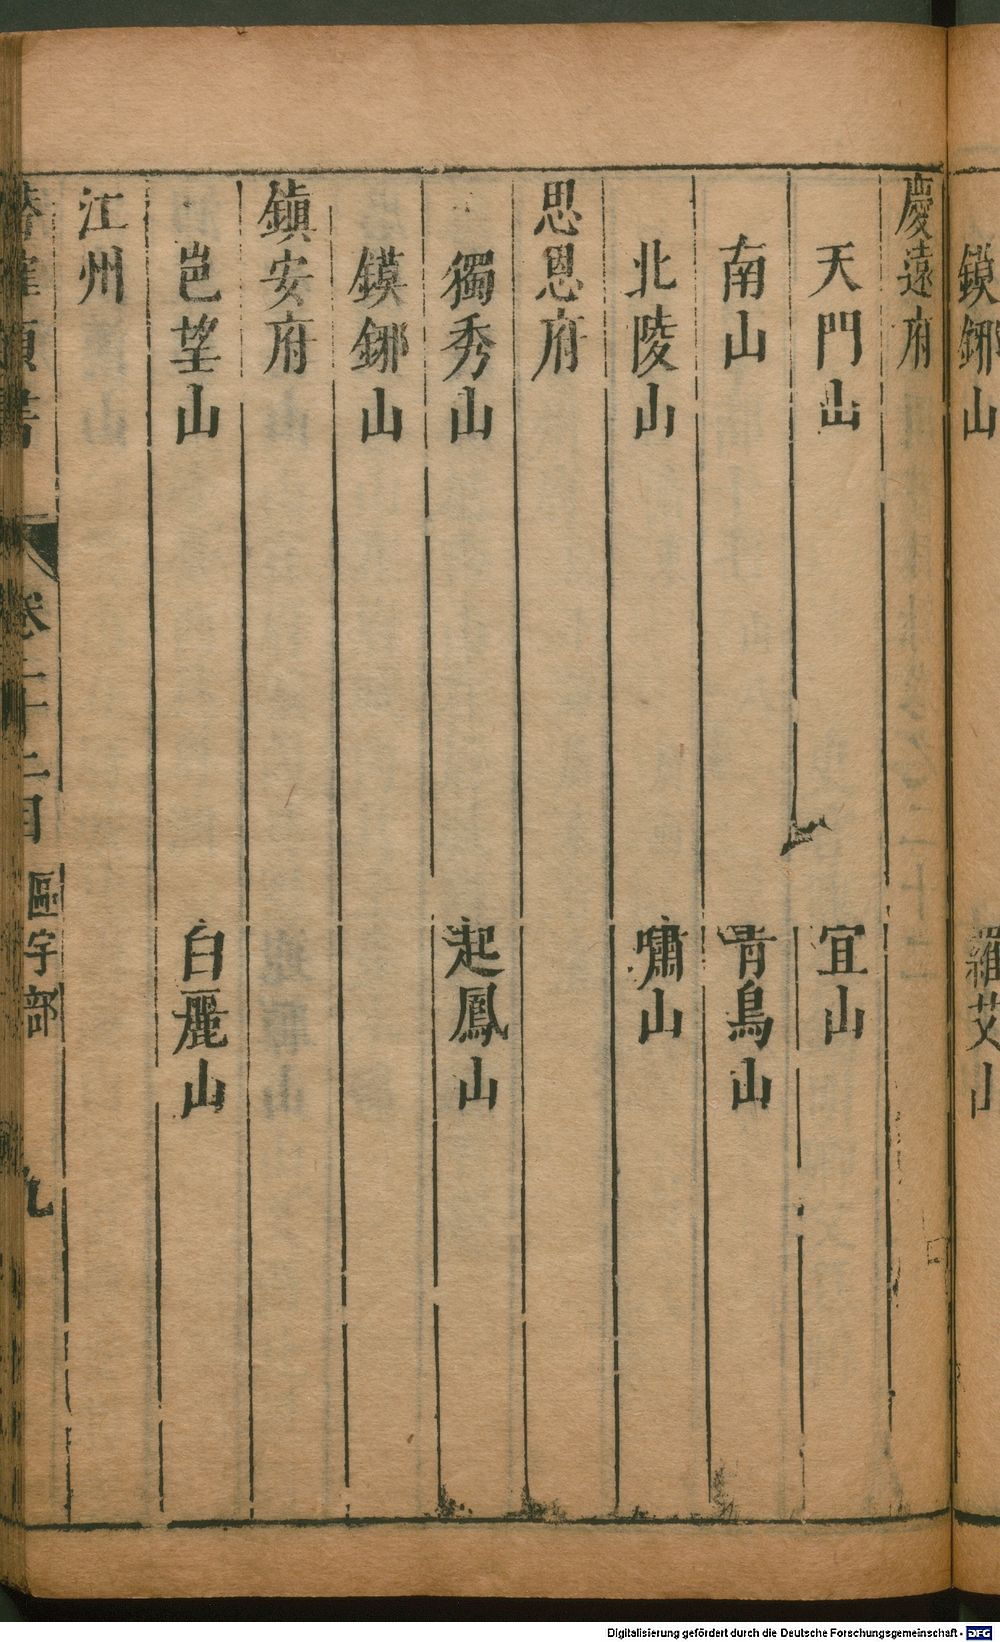 鏌鋣山 羅艾山
慶遠府
天門山 宜山
南山 青鳥山
北陵山 嘯山
思恩府
獨秀山 起鳳山
鏌鋣山
鎮安府
岜望山 白麗山
江州
類書 卷二十二目 區宇部 九
Digitalisierung gefördert durch die Deutsche Forschungsgemeinschaft - DFG